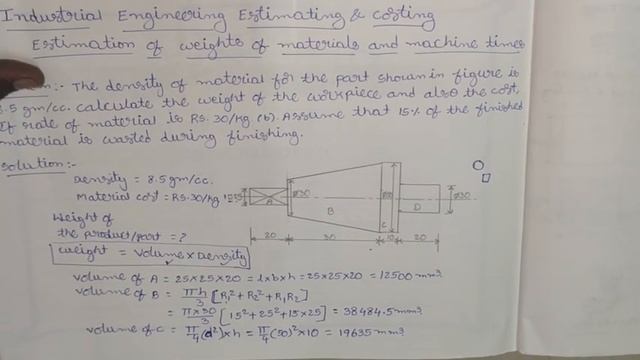 Industrial Engineering Estimating & Costing
Estimation of weights of materials and machine times
:- The density of material for the part shown in figure is
8.5 gm/cc. calculate the weight of the workpiece and also the cost,
If rate of material is Rs. 30/kg. (b). Assume that 15% of the finished
material is wasted during finishing.
Solution:-
Density = 8.5 gm/cc.
Material cost = Rs.30/kg
Weight of
the product/part = ?
weight = volume × Density
A
Ø30
B
C
D
Ø30
20
30
10
20
volume of A = 25×25×20 = l×b×h = 25×25×20 = 12500 mm³
volume of B = πh/3 [R₁² + R₂² + R₁R₂]
= π×30/3 [15² + 25² + 15×25] = 38484.5 mm³
volume of C = π/4 (d²)×h = π/4 (50)²×10 = 19635 mm³